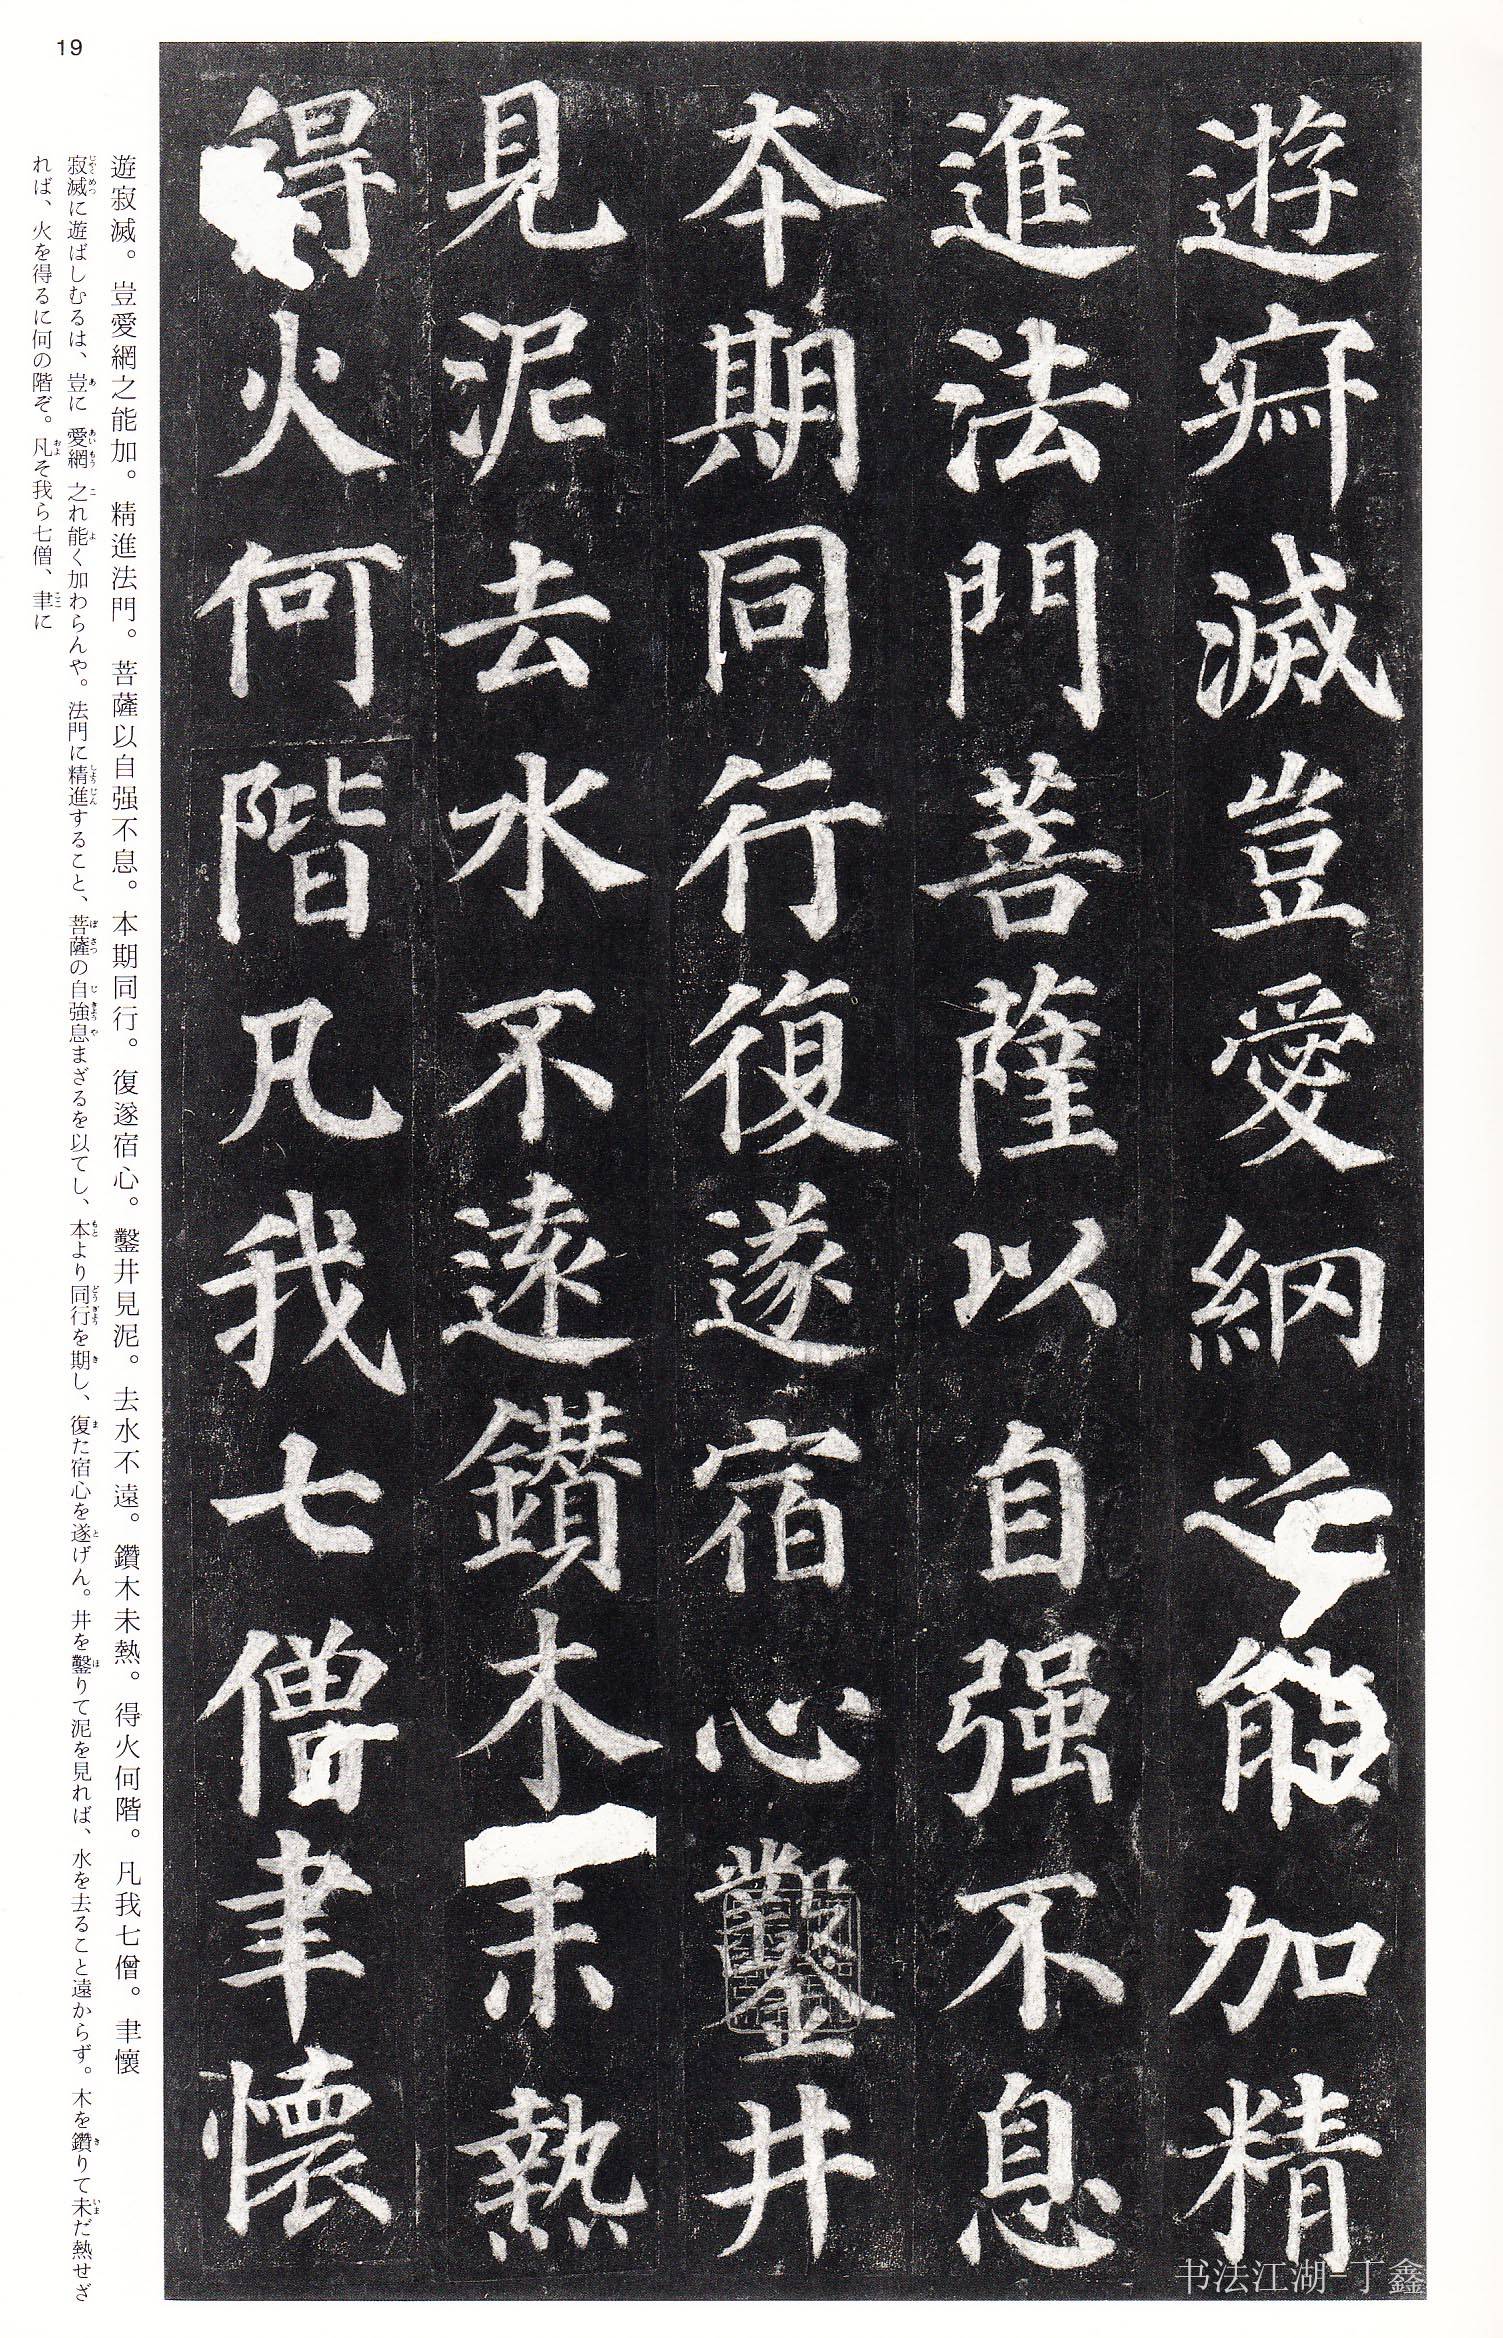 遊寂滅豈愛網之能加精
進法門菩薩以自强不息
本期同行復遂宿心鑿井
見泥去水不遠鑽木未熱
得火何階凡我七僧聿懷
遊寂滅。豈愛網之能加。精進法門。菩薩以自强不息。本期同行。復遂宿心。鑿井見泥。去水不遠。鑽木未熱。得火何階。凡我七僧。聿懷
寂滅に遊ばしむるは、豈に愛網之れ能く加わらんや。法門に精進すること、菩薩の自強息まざるを以てし、本より同行を期し、復た宿心を遂げん。井を鑿りて泥を見れば、水を去ること遠からず。木を鑽りて未だ熱せざ
れば、火を得るに何の階ぞ。凡そ我ら七僧、聿に
19
书法江湖-丁鑫